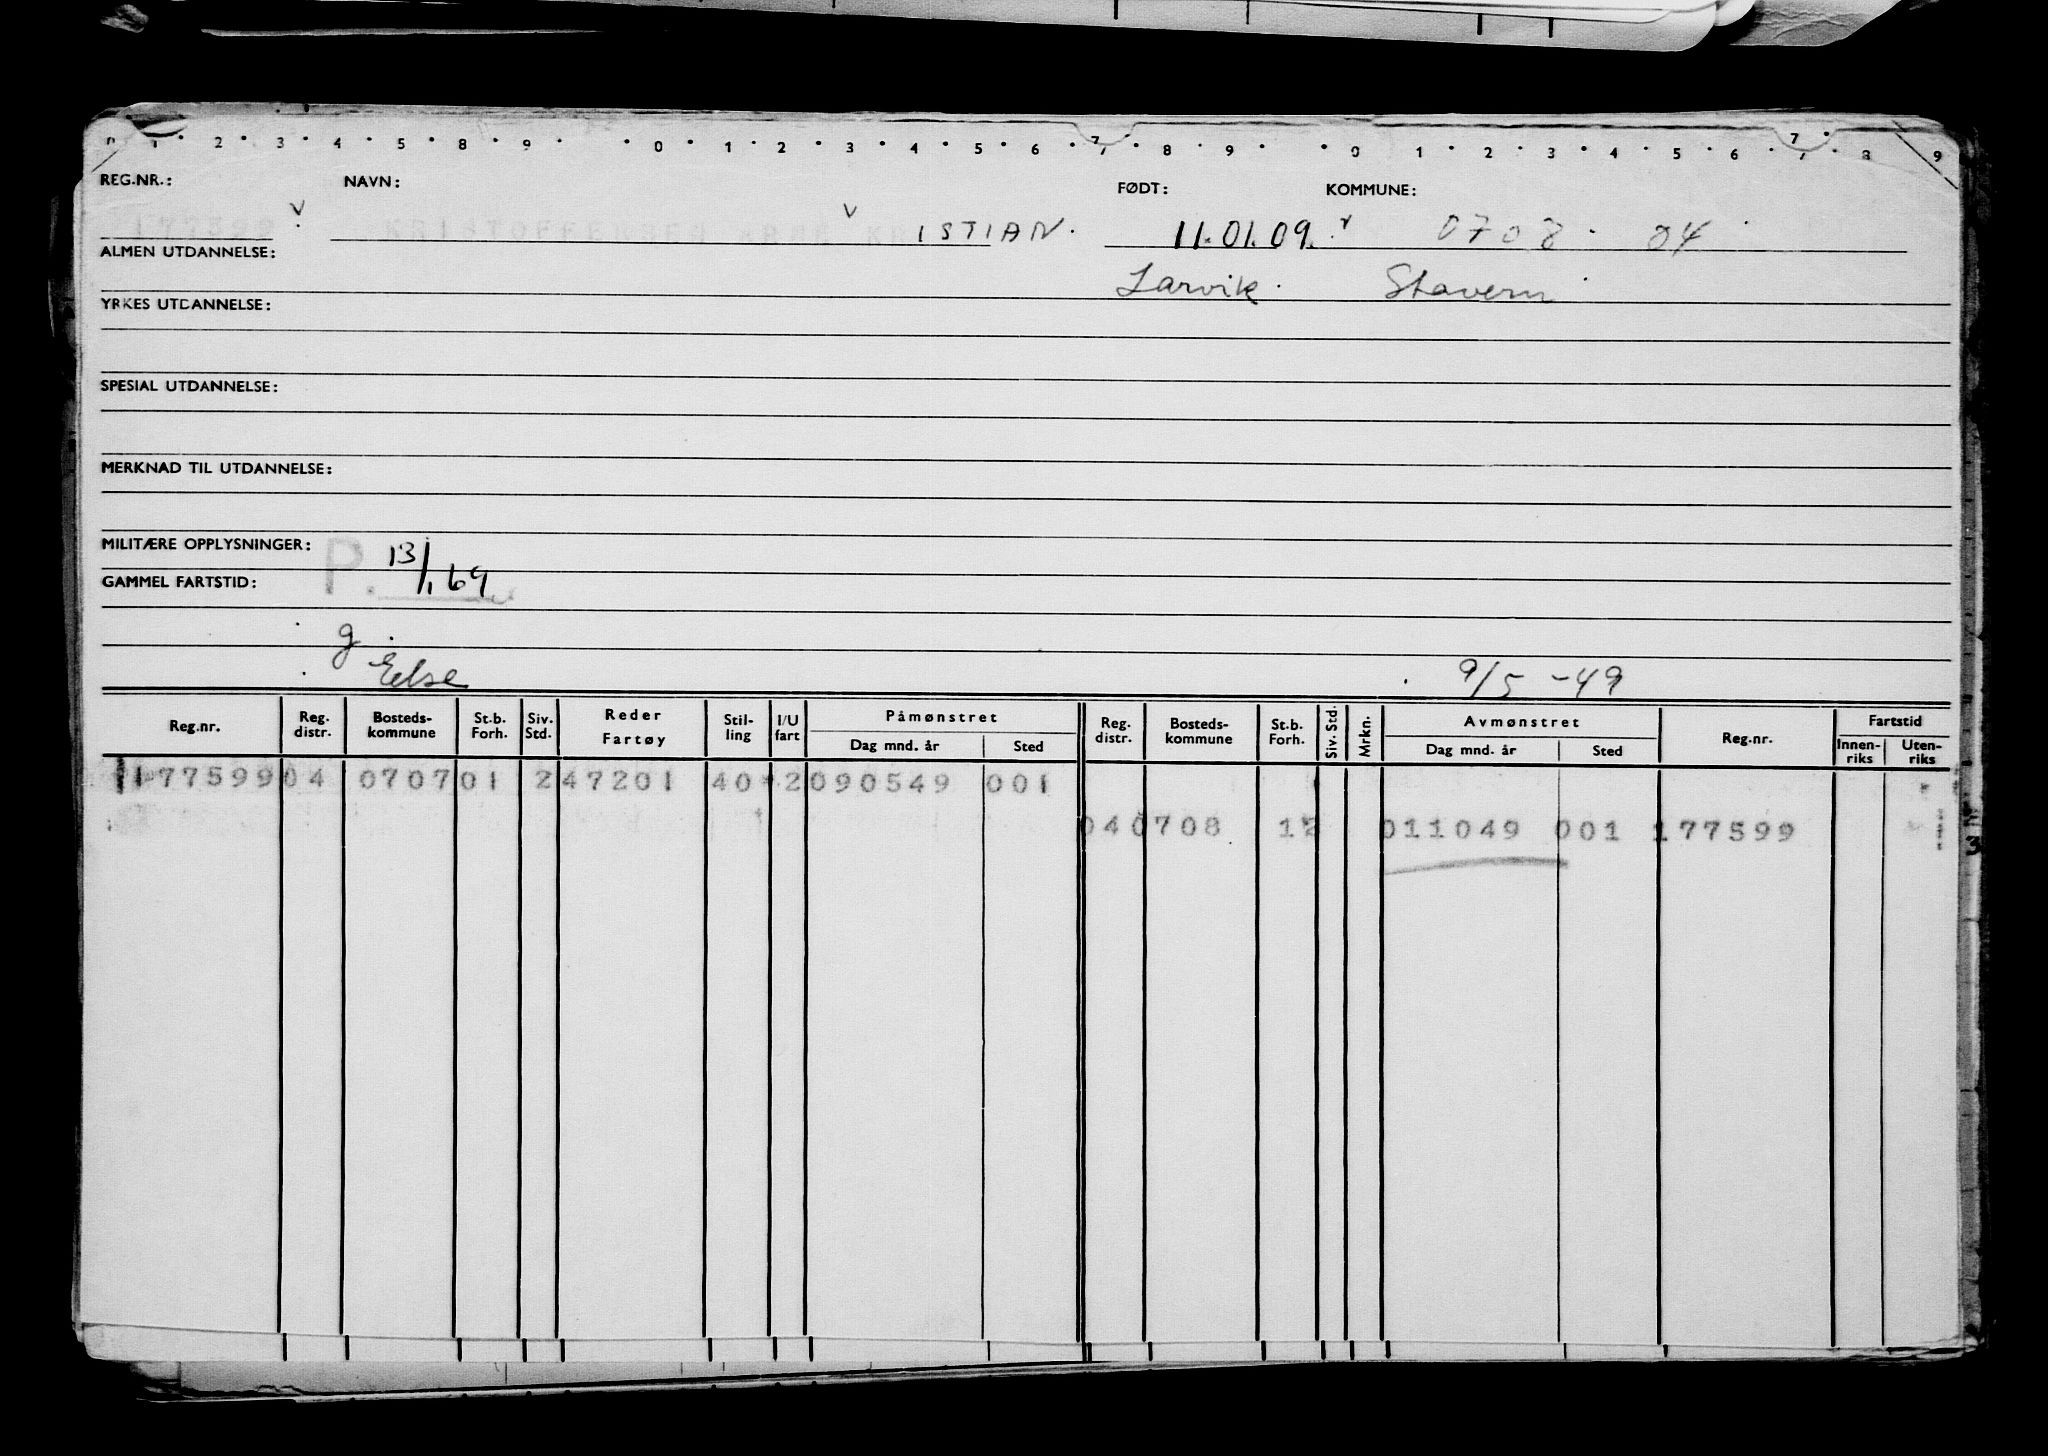 1 2 3 4 5 6 8 9 0 1 2 3 4 5 6 7 8 9 0 1 2 3 4 5 6 7 8 9
REG.NR.: NAVN: FØDT: KOMMUNE:
177599 KRISTOFFERSEN KRISTIAN. 11.01.09. 0708 04
ALMEN UTDANNELSE: Larvik. Stavern
YRKES UTDANNELSE:
SPESIAL UTDANNELSE:
MERKNAD TIL UTDANNELSE:
MILITÆRE OPPLYSNINGER: P. 13/1 69
GAMMEL FARTSTID:
g
Else 9/5 -49
Reg.nr. Reg. distr. Bosteds-kommune St.b. Forh. Siv. Std. Reder Fartøy Stil-ling I/U fart Påmønstret Dag mnd. år Sted Reg. distr. Bosteds-kommune St.b. Forh. Siv. Std. Mrkn. Avmønstret Dag mnd. år Sted Reg.nr. Fartstid Innen-riks Uten-riks
177599 04 0707 01 2 47201 40 2 090549 001
04 0708 12 011049 001 177599